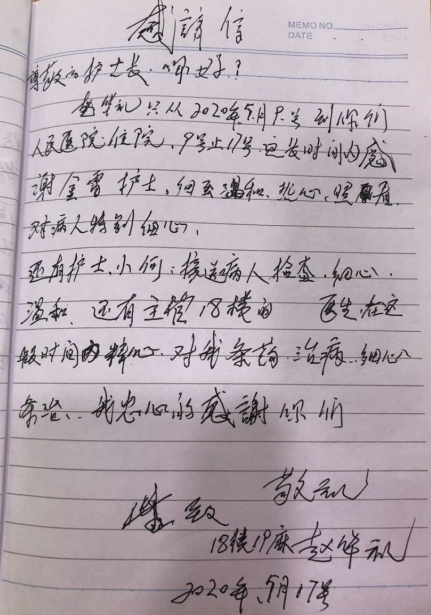 感謝信
MEMO NO.
DATE
尊敬的护士长、你好？
赵华礼只从2020年5月9号到你们
人民医院住院、9号止17号这段时间内感
谢金雷护士、细至温和、热心、照看
对病人特别细心、
还有护士小何：接送病人检查、细心、
温和、还有主管18楼的 医生在这
段时间内精心对我条药治病、细心
条治、我忠心的感謝你们
敬礼
此致
18楼19床赵华礼
2020年5月17号